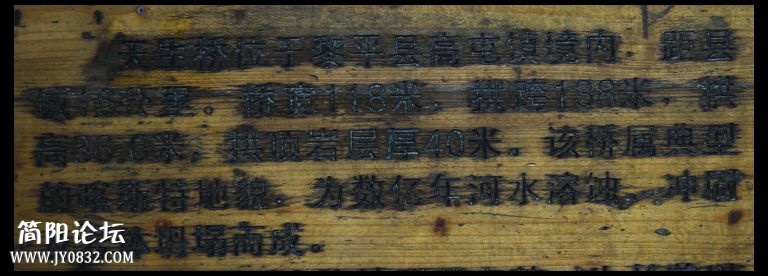 天生桥位于黎平县高屯镇境内 距县
城16公里。桥宽118米，拱跨138米，拱
高36.6米，拱顶岩层厚40米。该桥属典型
的喀斯特地貌。为数亿年河水溶蚀、冲刷
体坍塌而成。
简阳论坛
www.JY0832.com